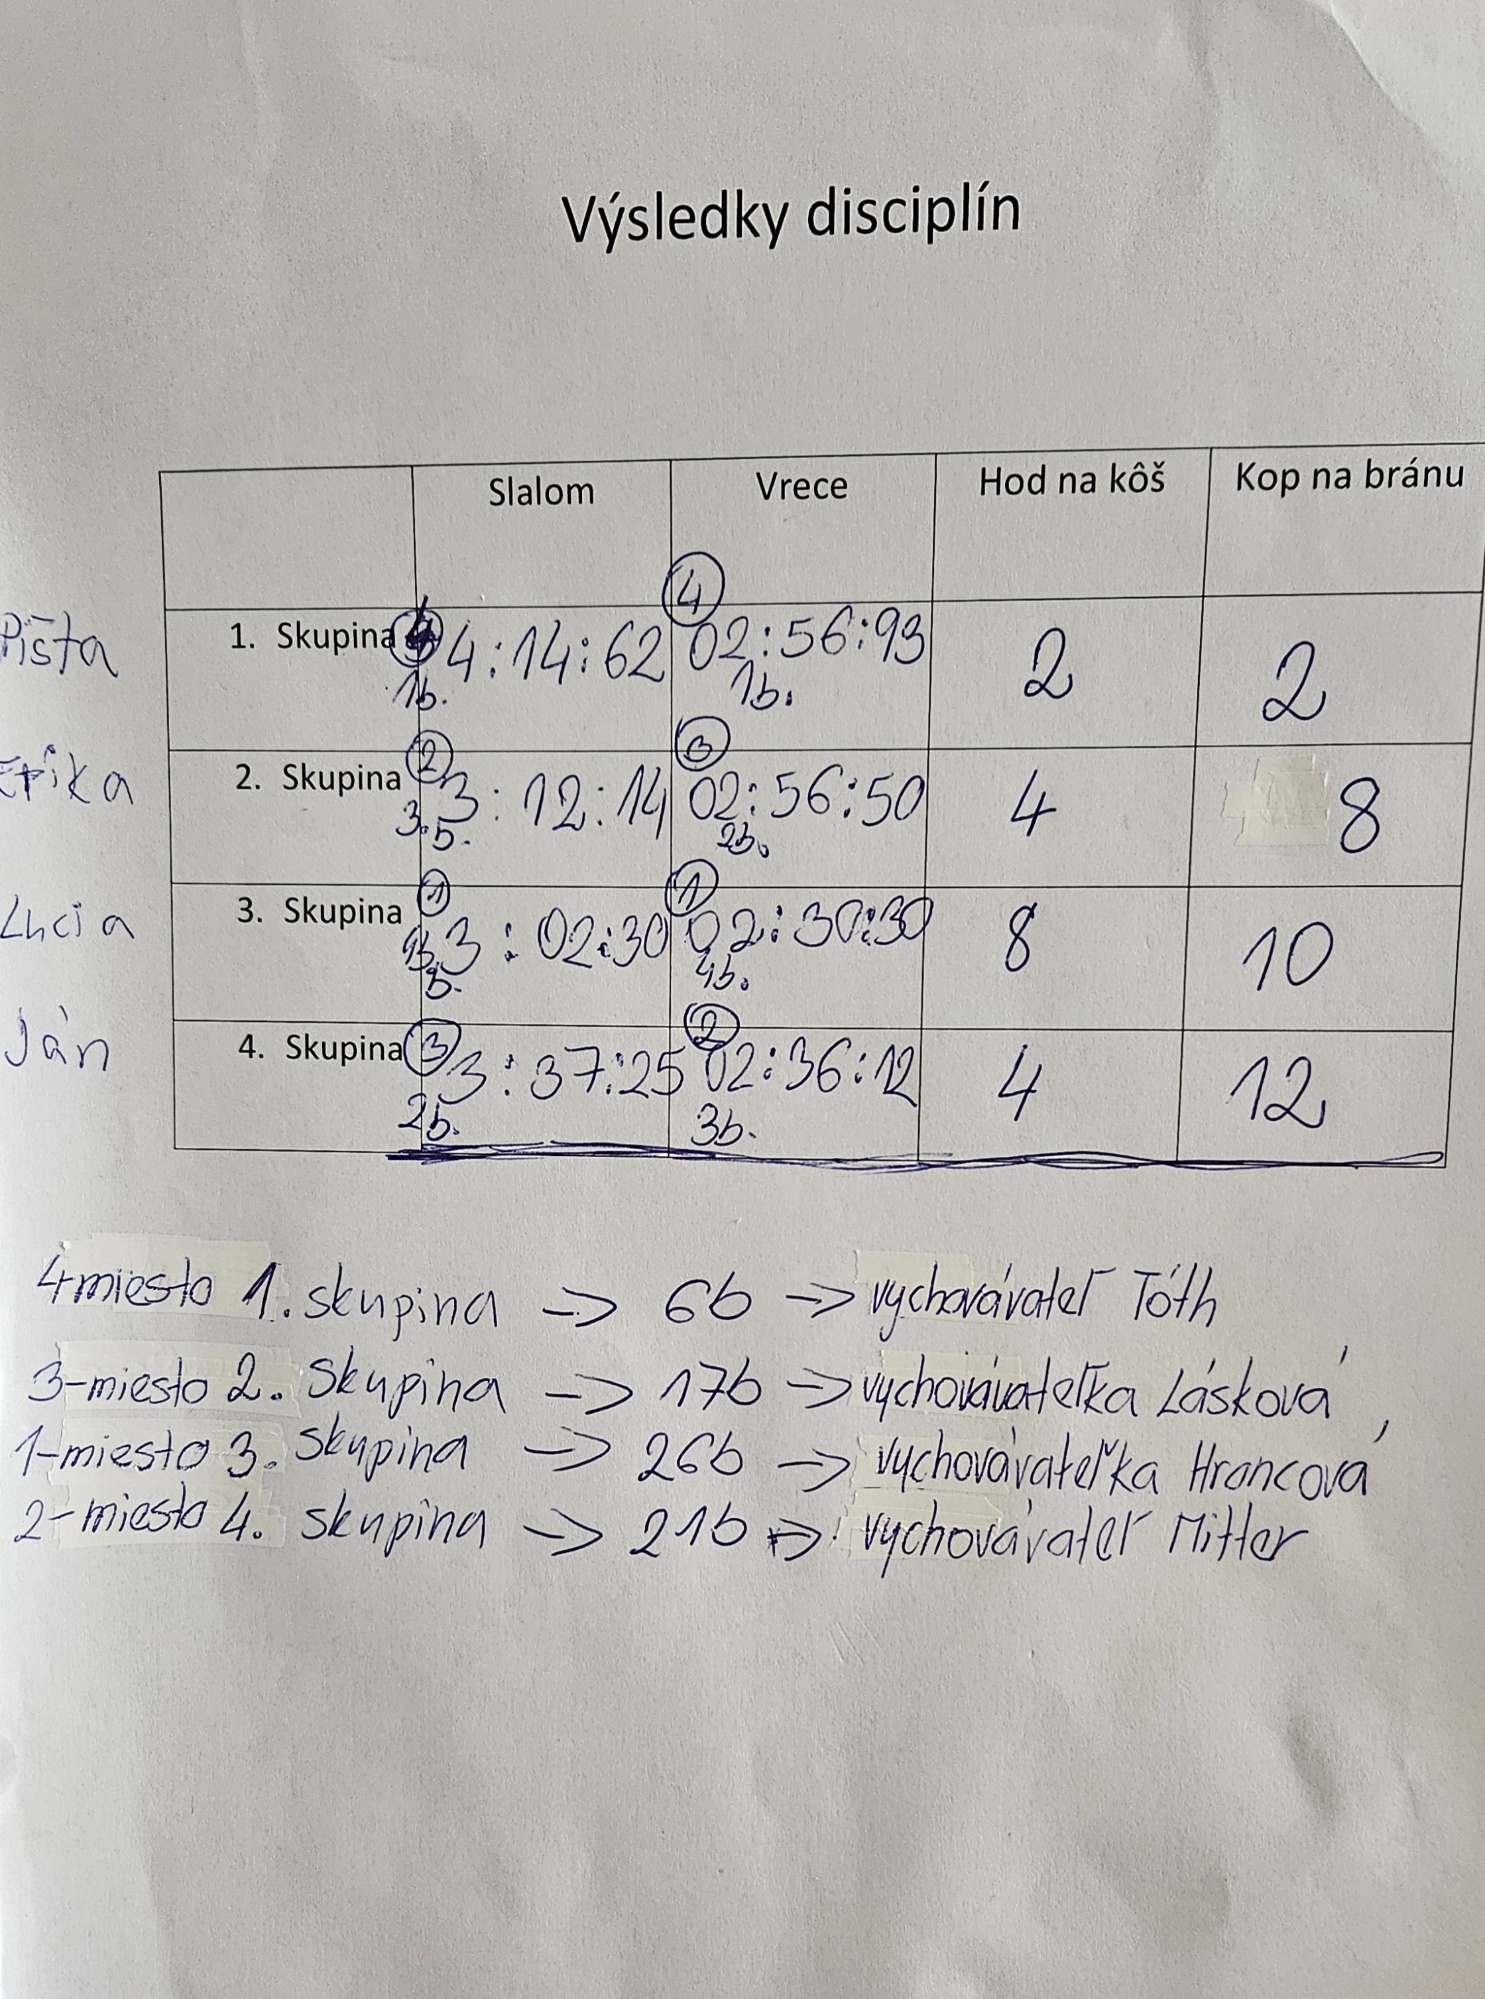 Výsledky disciplín
Slalom Vrece Hod na kôš Kop na bránu
Pišta 1. Skupina 4 4:14:62 1b. 4 02:56:93 1b. 2 2
Erika 2. Skupina 2 3:12:14 3.b. 3 02:56:50 2b. 4 8
Lucia 3. Skupina 1 3:02:30 b. 1 02:30:30 4b. 8 10
Ján 4. Skupina 3 3:37:25 2b. 2 02:36:12 3b. 4 12
4miesto 1. skupina -> 6b -> vychovávateľ Tóth
3-miesto 2. skupina -> 17b -> vychovávateľka Lásková
1-miesto 3. skupina -> 26b -> vychovávateľka Hroncová
2-miesto 4. skupina -> 21b -> vychovávateľ Mitter